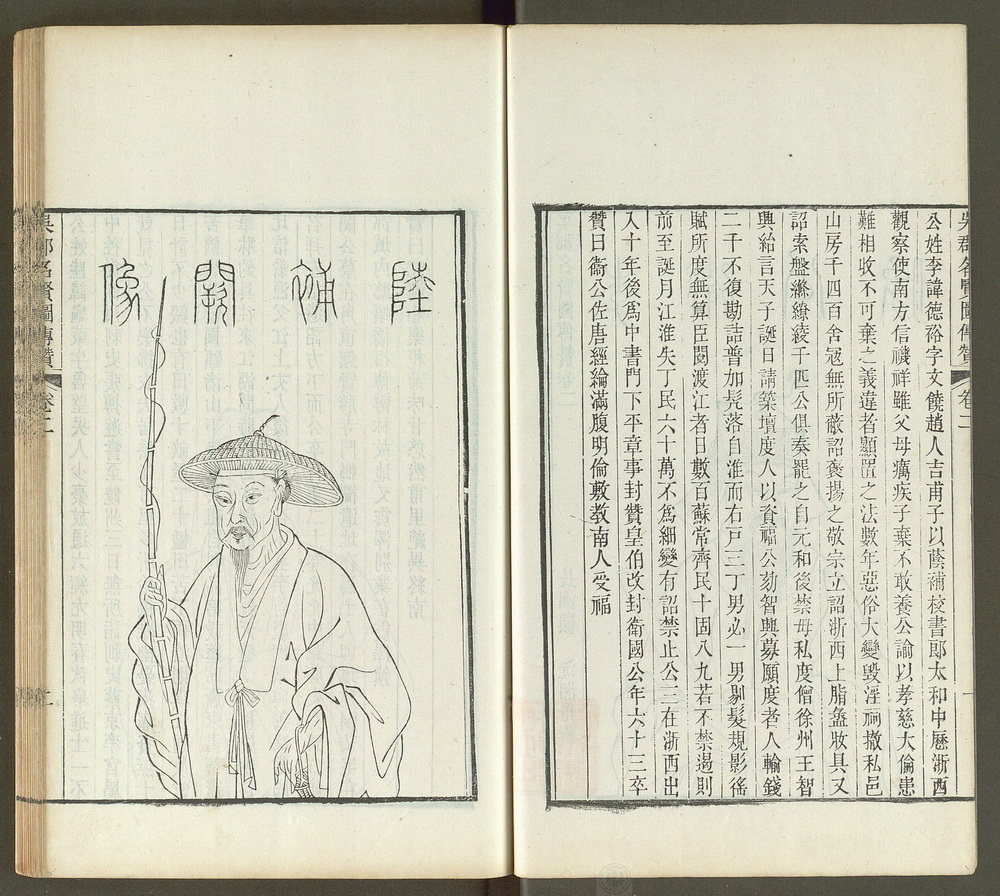 吳郡名賢圖傳贊 卷二 一
公姓李諱德裕字文饒趙人吉甫子以蔭補校書郎太和中歷浙西
觀察使南方信禨祥雖父母癘疾子棄不敢養公諭以孝慈大倫患
難相收不可棄之義違者顯寘之法數年惡俗大變毀淫祠撤私邑
山房千四百舍寇無所蔽詔褒揚之敬宗立詔浙西上脂盝妝具又
詔索盤縧繚綾千匹公俱奏罷之自元和後禁毋私度僧徐州王智
興紿言天子誕日請築壇度人以資福公劾智興募願度者人輸錢
二千不復勘詰普加髡落自淮而右戸三丁男必一男剔髮規影徭
賦所度無算臣閱渡江者日數百蘇常齊民十固八九若不禁遏則
前至誕月江淮失丁民六十萬不爲細變有詔禁止公三在浙西出
入十年後爲中書門下平章事封贊皇伯改封衛國公年六十三卒
贊曰衞公佐唐經綸滿腹明倫敷敎南人受福
陸補闕像
吳郡名賢圖傳贊 卷二